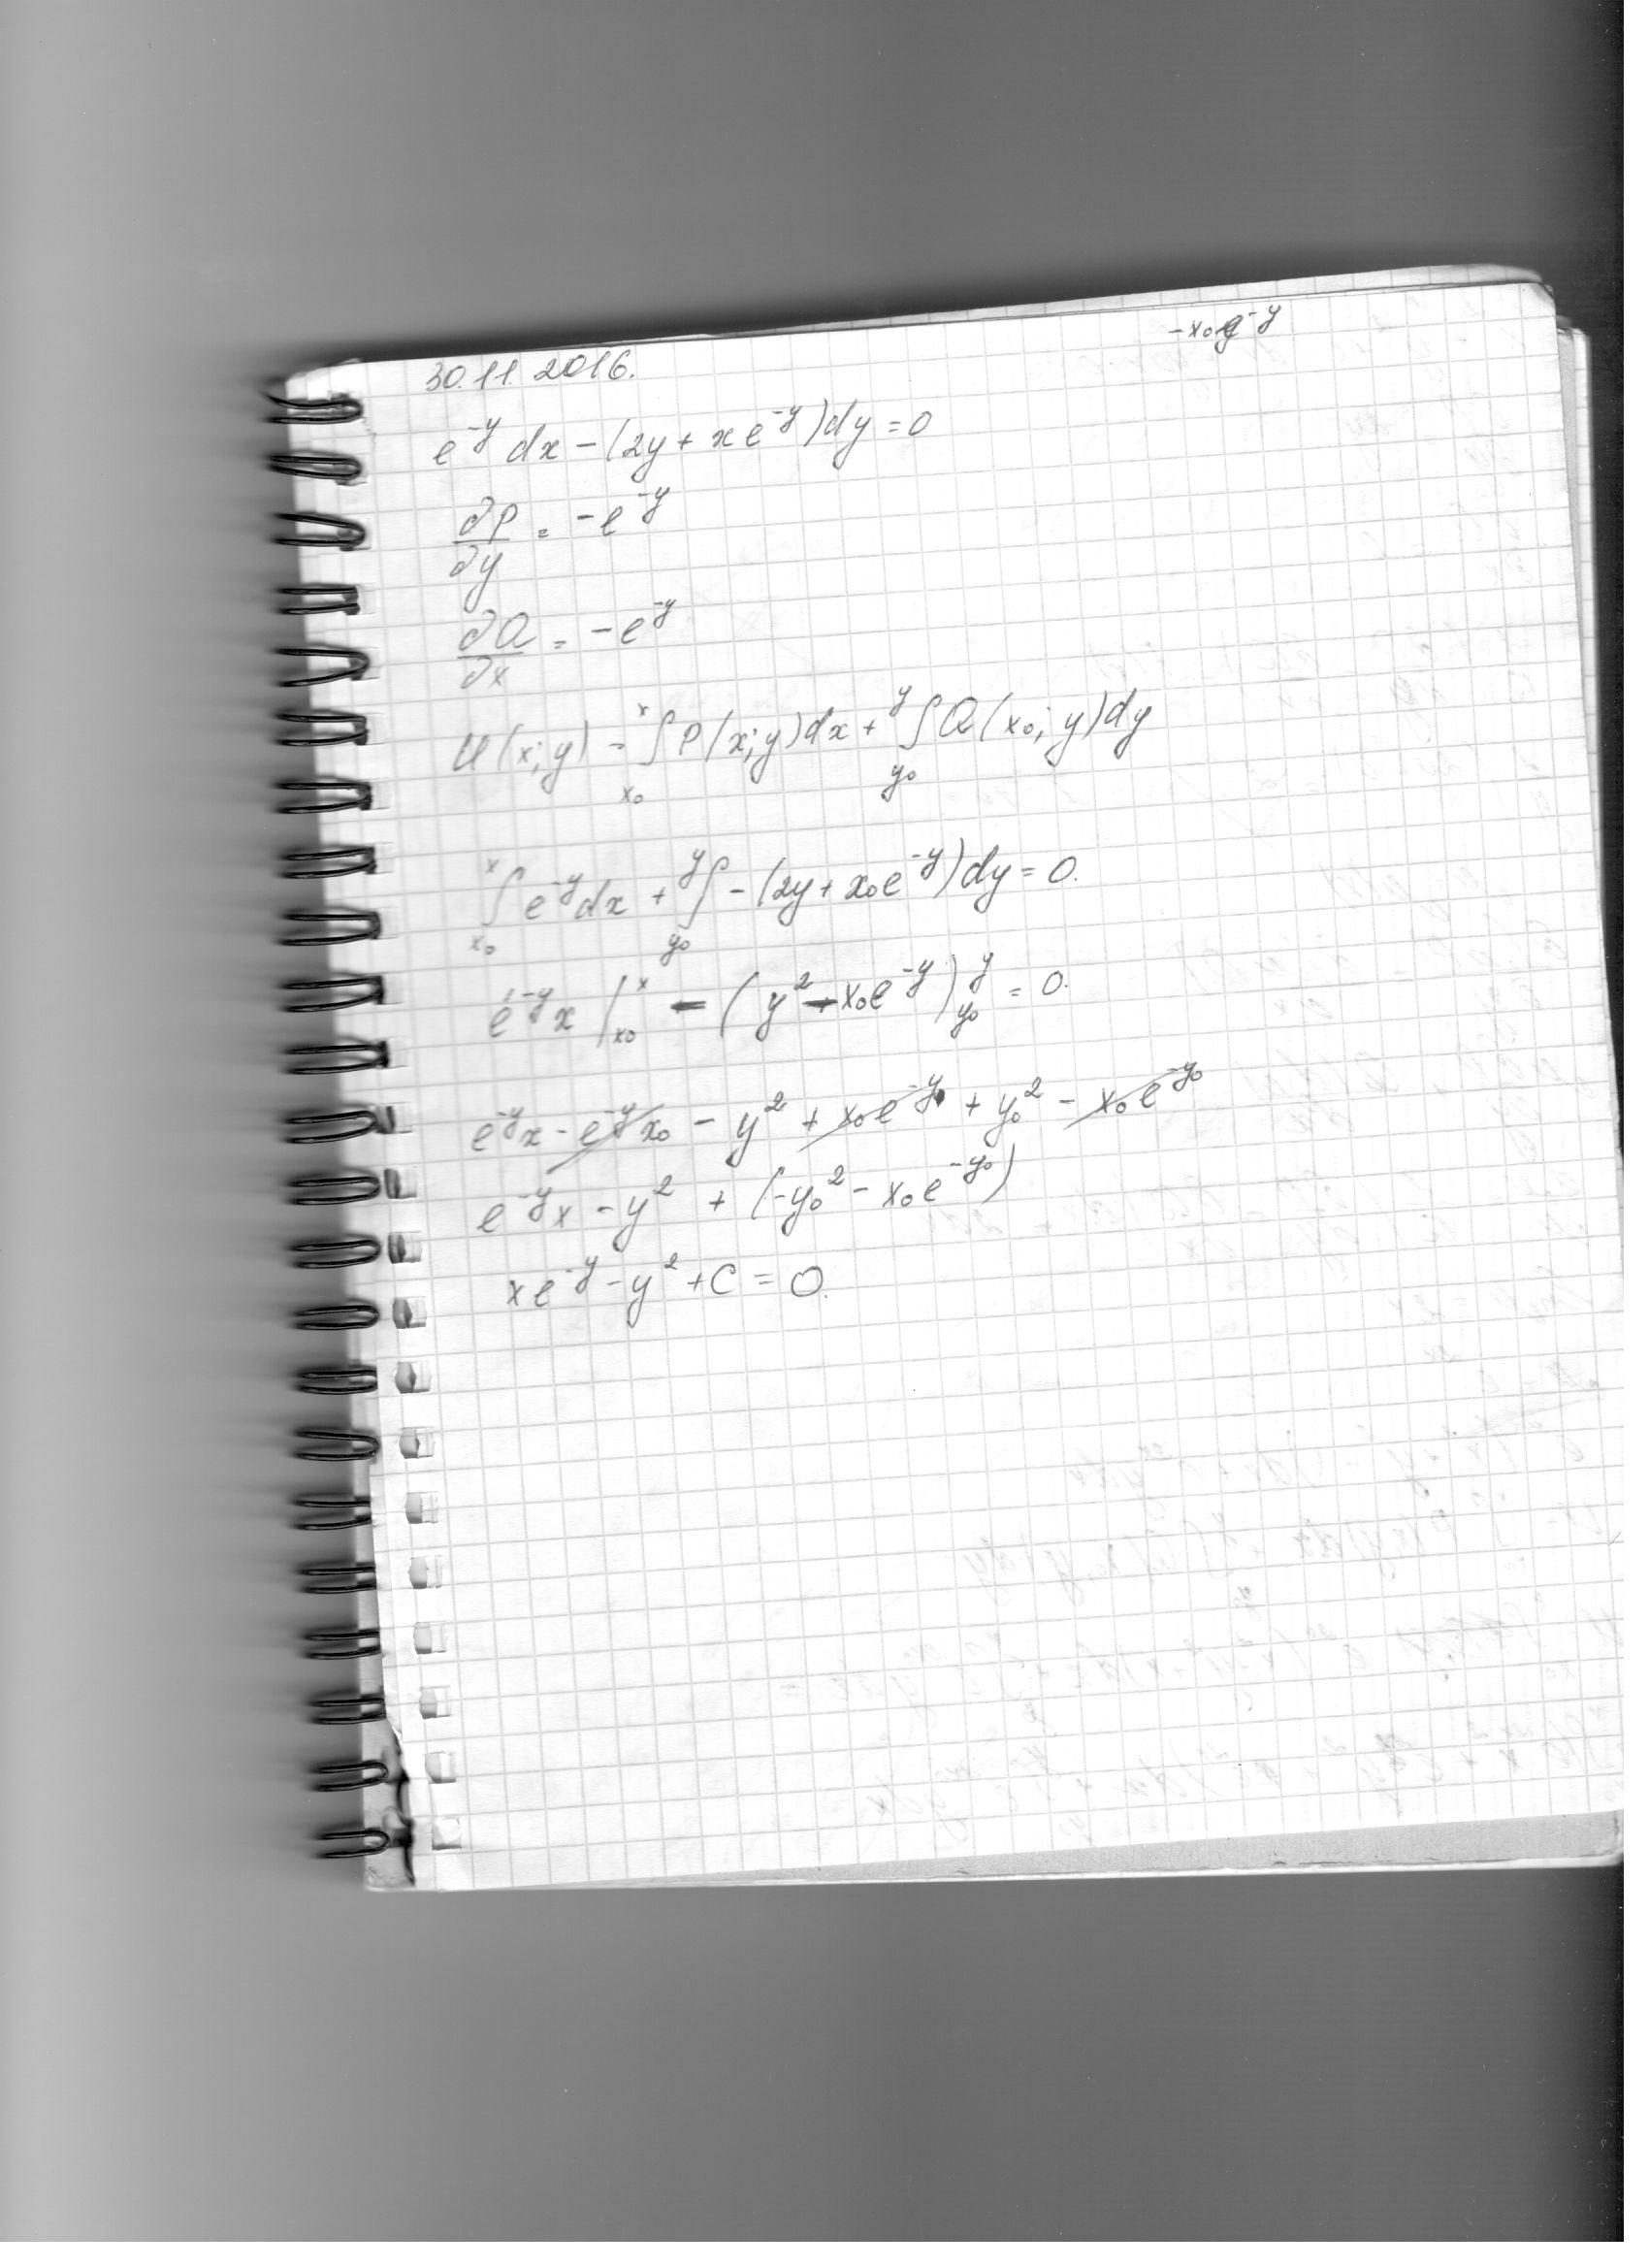 -x₀e^{-y}
30.11.2016.
e^{-y} dx - (2y + xe^{-y})dy = 0
∂P/∂y = -e^{-y}
∂Q/∂x = -e^{-y}
U(x;y) = ∫_{x₀}^{x} P(x;y)dx + ∫_{y₀}^{y} Q(x₀;y)dy
∫_{x₀}^{x} e^{-y}dx + ∫_{y₀}^{y} -(2y + x₀e^{-y})dy = 0.
e^{-y}x |_{x₀}^{x} - (y² - x₀e^{-y})_{y₀}^{y} = 0.
e^{-y}x - e^{-y}x₀ - y² + x₀e^{-y} + y₀² - x₀e^{-y₀}
e^{-y}x - y² + (-y₀² - x₀e^{-y₀})
xe^{-y} - y² + C = 0.